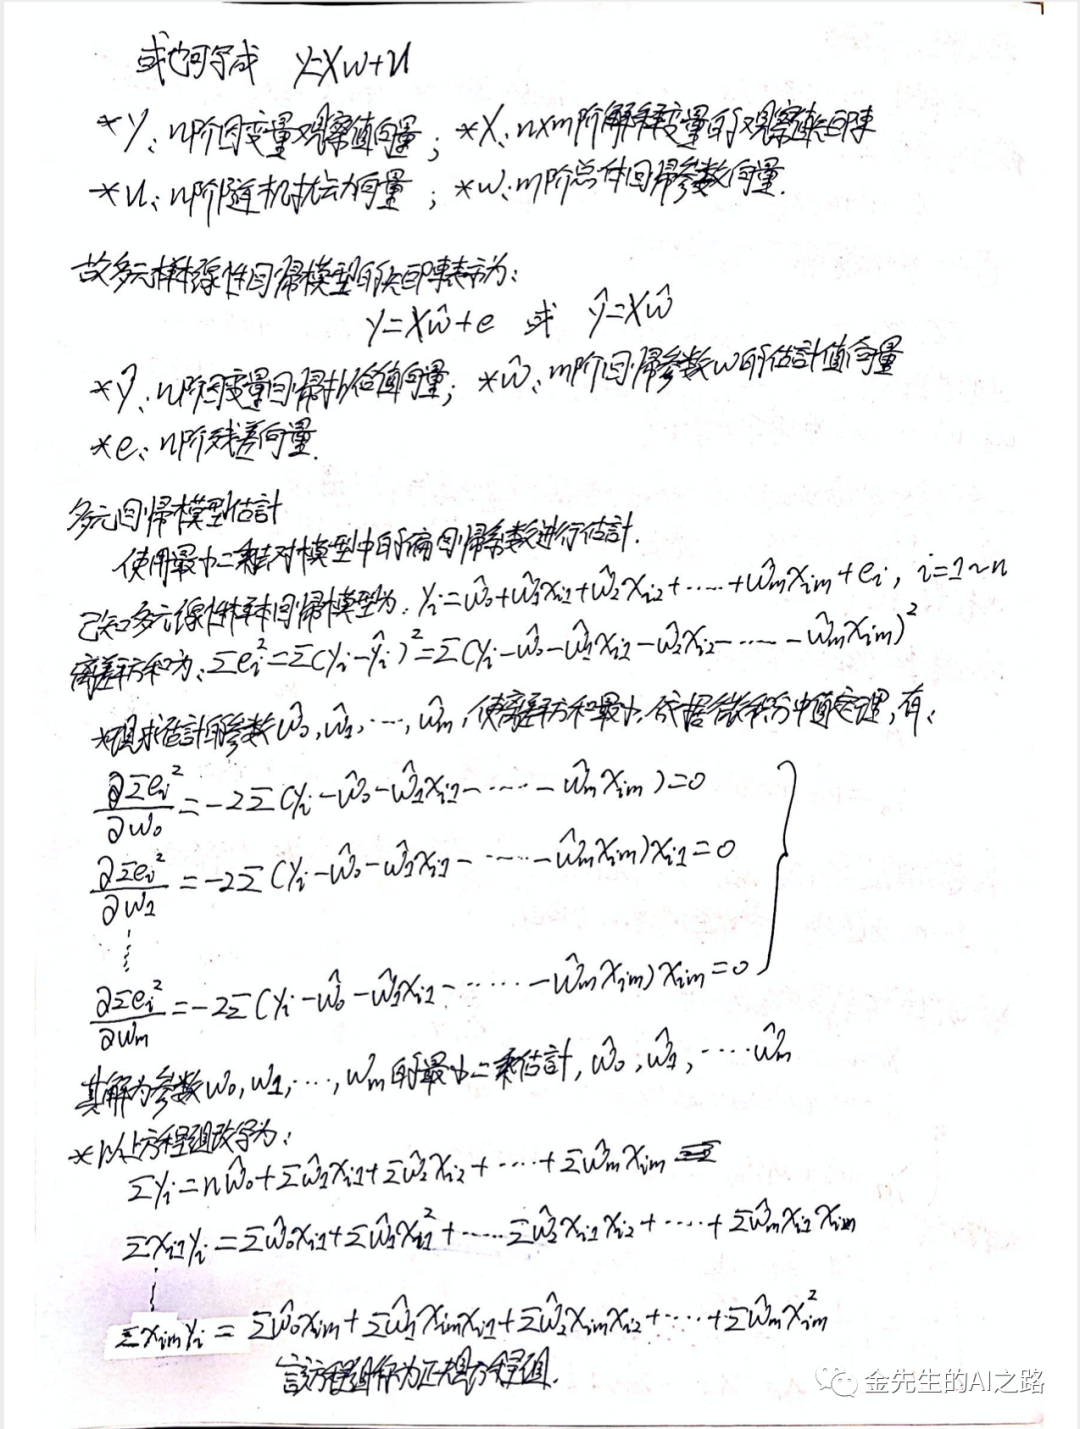 或也可写成 y=Xw+u
*y: n阶因变量观察值向量; *X: n×m阶解释变量的观察值矩陣
*u: n阶随机扰动向量; *w: m阶总体回歸参数向量.
故多元样本線性回歸模型的矩陣表示为:
y=Xŵ+e 或 ŷ=Xŵ
*ŷ: n阶因变量回歸拟估值向量; *ŵ: m阶回歸参数w的估計值向量
*e: n阶残差向量.
多元回歸模型估計
使用最小二乘对模型中的偏回歸系数进行估計.
已知多元線性样本回歸模型为: yi=ŵ0+ŵ1xi1+ŵ2xi2+......+ŵmxim+ei, i=1~n
离差平方和为: Σei²=Σ(yi-ŷi)²=Σ(yi-ŵ0-ŵ1xi1-ŵ2xi2-......-ŵmxim)²
*現求估計的参数ŵ0,ŵ1,...,ŵm,使离差平方和最小,依据微积分中值定理,有:
∂Σei²/∂w0=-2Σ(yi-ŵ0-ŵ1xi1-......-ŵmxim)=0
∂Σei²/∂w1=-2Σ(yi-ŵ0-ŵ1xi1-......-ŵmxim)xi1=0
⋮
∂Σei²/∂wm=-2Σ(yi-ŵ0-ŵ1xi1-......-ŵmxim)xim=0
其解为参数w0,w1,...,wm的最小二乘估計,ŵ0,ŵ1,....ŵm
*以上方程组改写为:
Σyi=nŵ0+Σŵ1xi1+Σŵ2xi2+....+Σŵmxim
Σxi1yi=Σŵ0xi1+Σŵ1xi1²+.....Σŵ2xi1xi2+....+Σŵmxi1xim
⋮
Σximyi=Σŵ0xim+Σŵ1ximxi1+Σŵ2ximxi2+....+Σŵmxim²
該方程组称为正規方程组.
金先生的AI之路